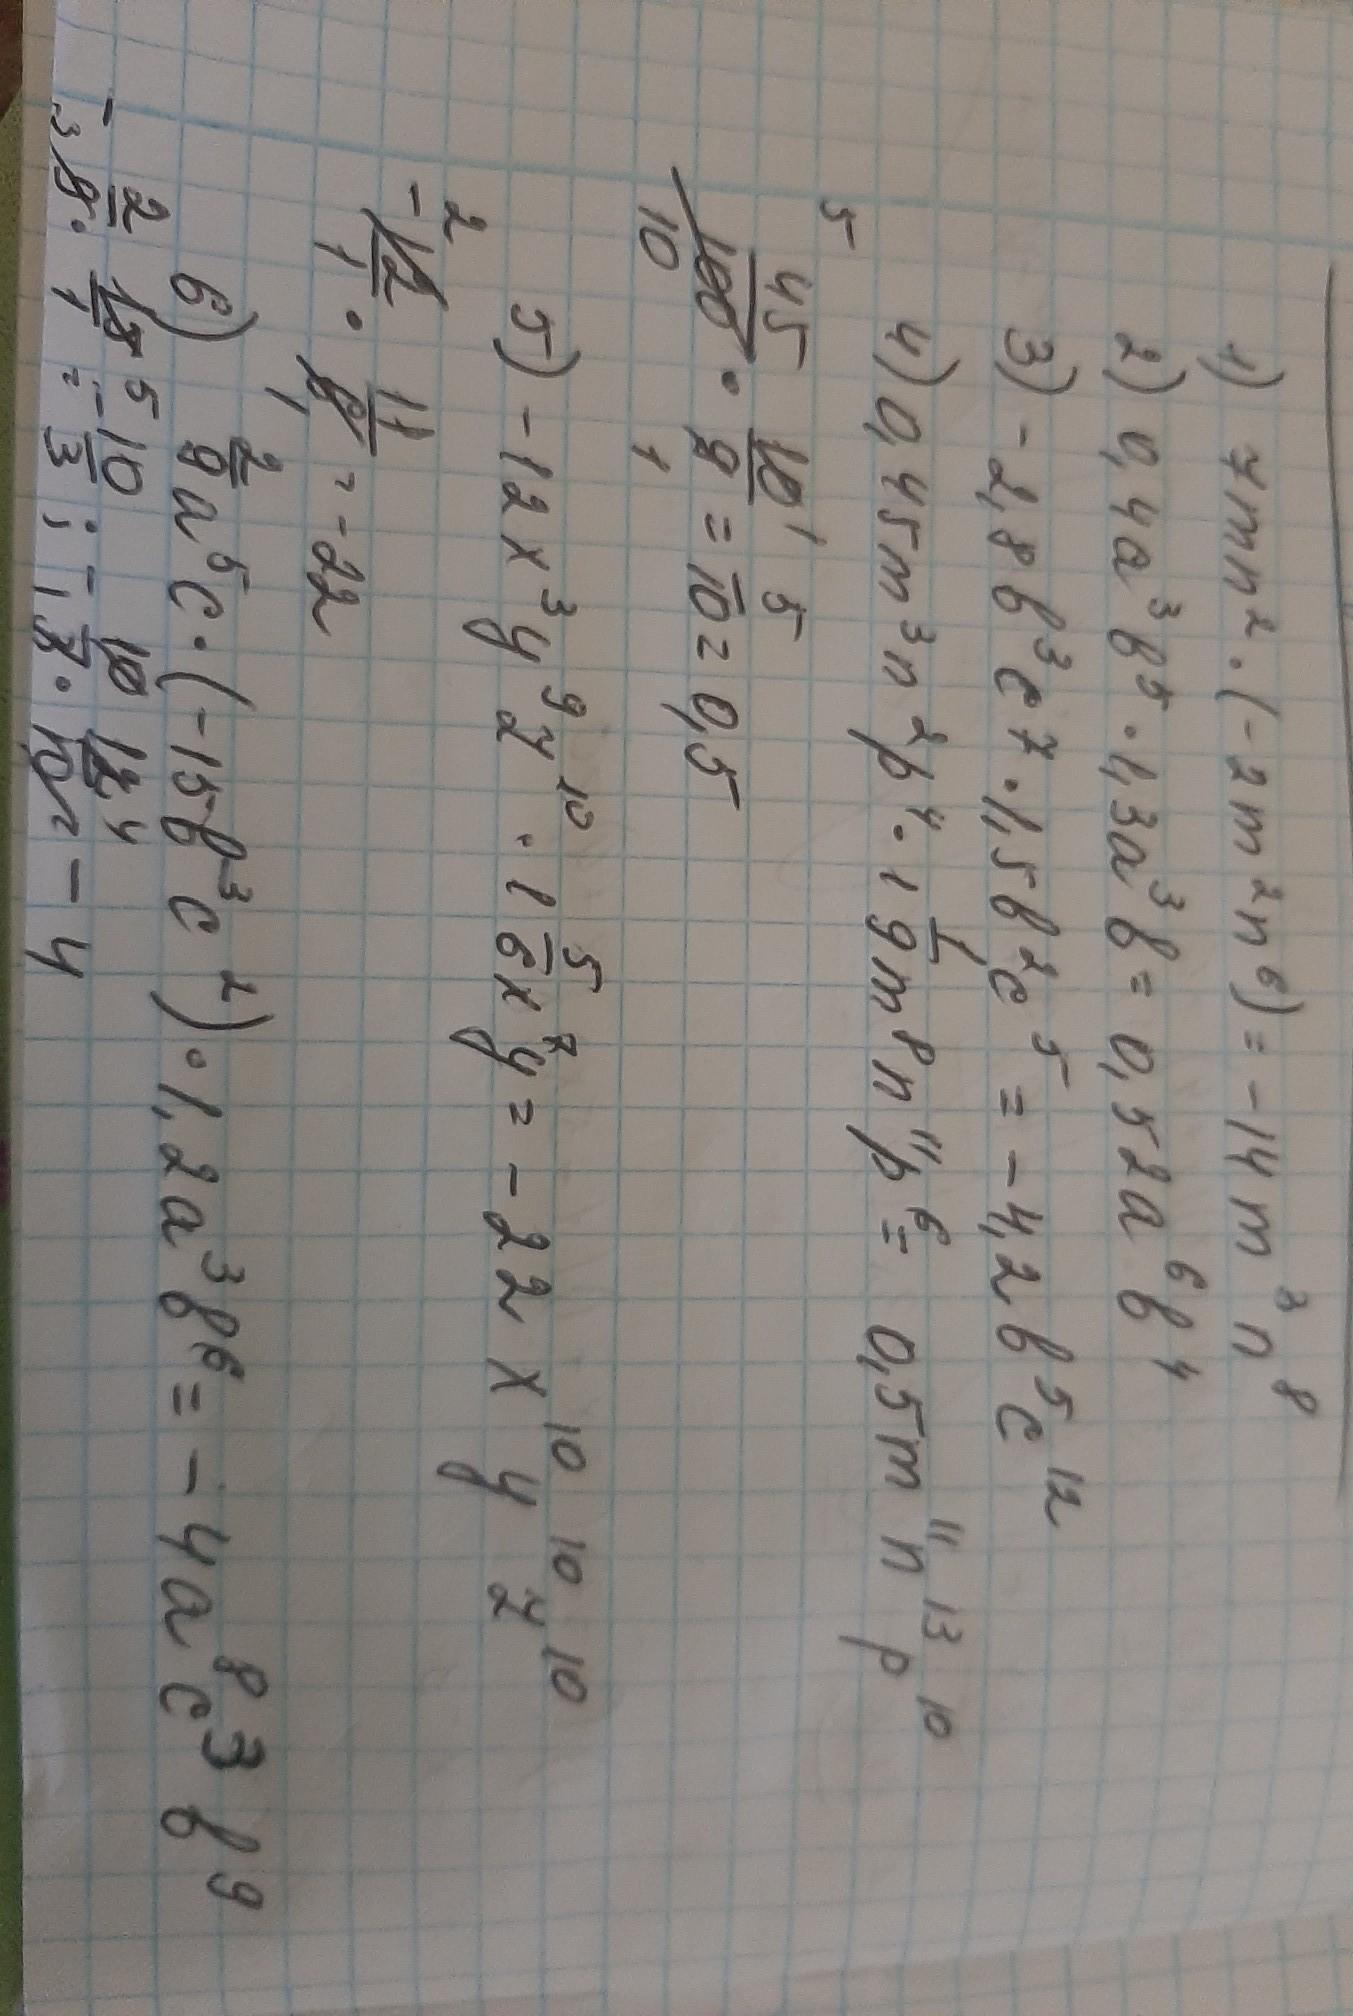 1) 7mn². (-2m²n⁶) = -14m³n⁸
2) 0,4a³b⁵ · 1,3a³b = 0,52a⁶b⁴
3) -2,8b³c⁷ · 1,5b²c⁵ = -4,2b⁵c¹²
4) 0,45m³n²p⁴ · 1 1/9 m⁸n¹¹p⁶ = 0,5m¹¹n¹³p¹⁰
5 45/100 10 · 10/9 1 1 = 5/10 = 0,5
5) -12x³y⁹z¹⁰ · 1 5/6 x⁷y = -22x¹⁰y¹⁰z¹⁰
2 -12/1 · 11/6 1 = -22
6) 2/9 a⁵c · (-15b³c²) · 1,2a³b⁶ = -4a⁸c³b⁹
- 2/9 3 · 15/1 5 = -10/3 ; - 10/3 1 · 12/10 4 = -4